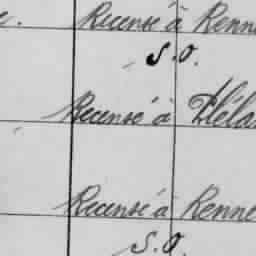 Recensé à Renn
S.O.
Recensé à Péla
Recensé à Renne
S.O.